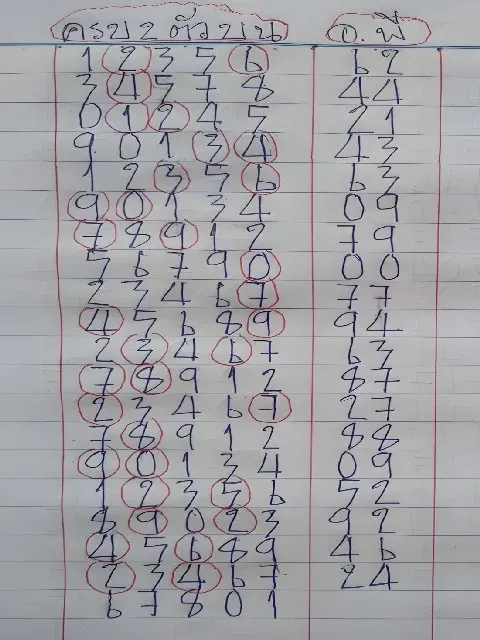 ครบ 2 ตัวบน อ. พี
1 2 3 5 6 62
3 4 5 7 8 44
0 1 2 4 5 21
9 0 1 3 4 43
1 2 3 5 6 63
9 0 1 3 4 09
7 8 9 1 2 79
5 6 7 9 0 00
2 3 4 6 7 77
4 5 6 8 9 94
2 3 4 6 7 63
7 8 9 1 2 87
2 3 4 6 7 27
7 8 9 1 2 88
9 0 1 3 4 09
1 2 3 5 6 52
8 9 0 2 3 92
4 5 6 8 9 46
2 3 4 6 7 24
6 7 8 0 1